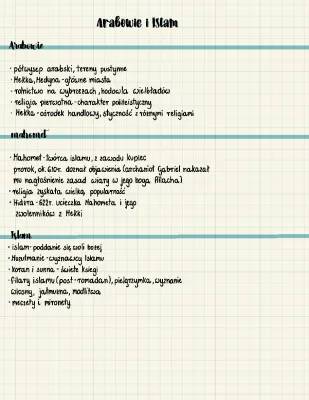 Arabowie i Islam
Arabowie
· półwysep arabski, tereny pustynne
· Mekka, Medyna - główne miasta
· rolnictwo na wybrzeżach, hodowla wielbłądów
· religia pierwotna - charakter politeistyczny
· Mekka - ośrodek handlowy, styczność z różnymi religiami
mahomet
· Mahomet - twórca islamu, z zawodu kupiec
prorok, ok. 610r. doznał objawienia (archanioł Gabriel nakazał
mu nagłośnienie zasad wiary w jego boga Allacha)
· religia zyskała wielką popularność
· Hidżra - 622r. ucieczka Mahometa i jego
zwolenników z Mekki
Islam
· islam - poddanie się woli bożej
· Muzułmanie - wyznawcy Islamu
· Koran i sunna - święte księgi
· filary islamu (post - ramadan), pielgrzymka, wyznanie
wiary, jałmużna, modlitwa
· meczety i minarety